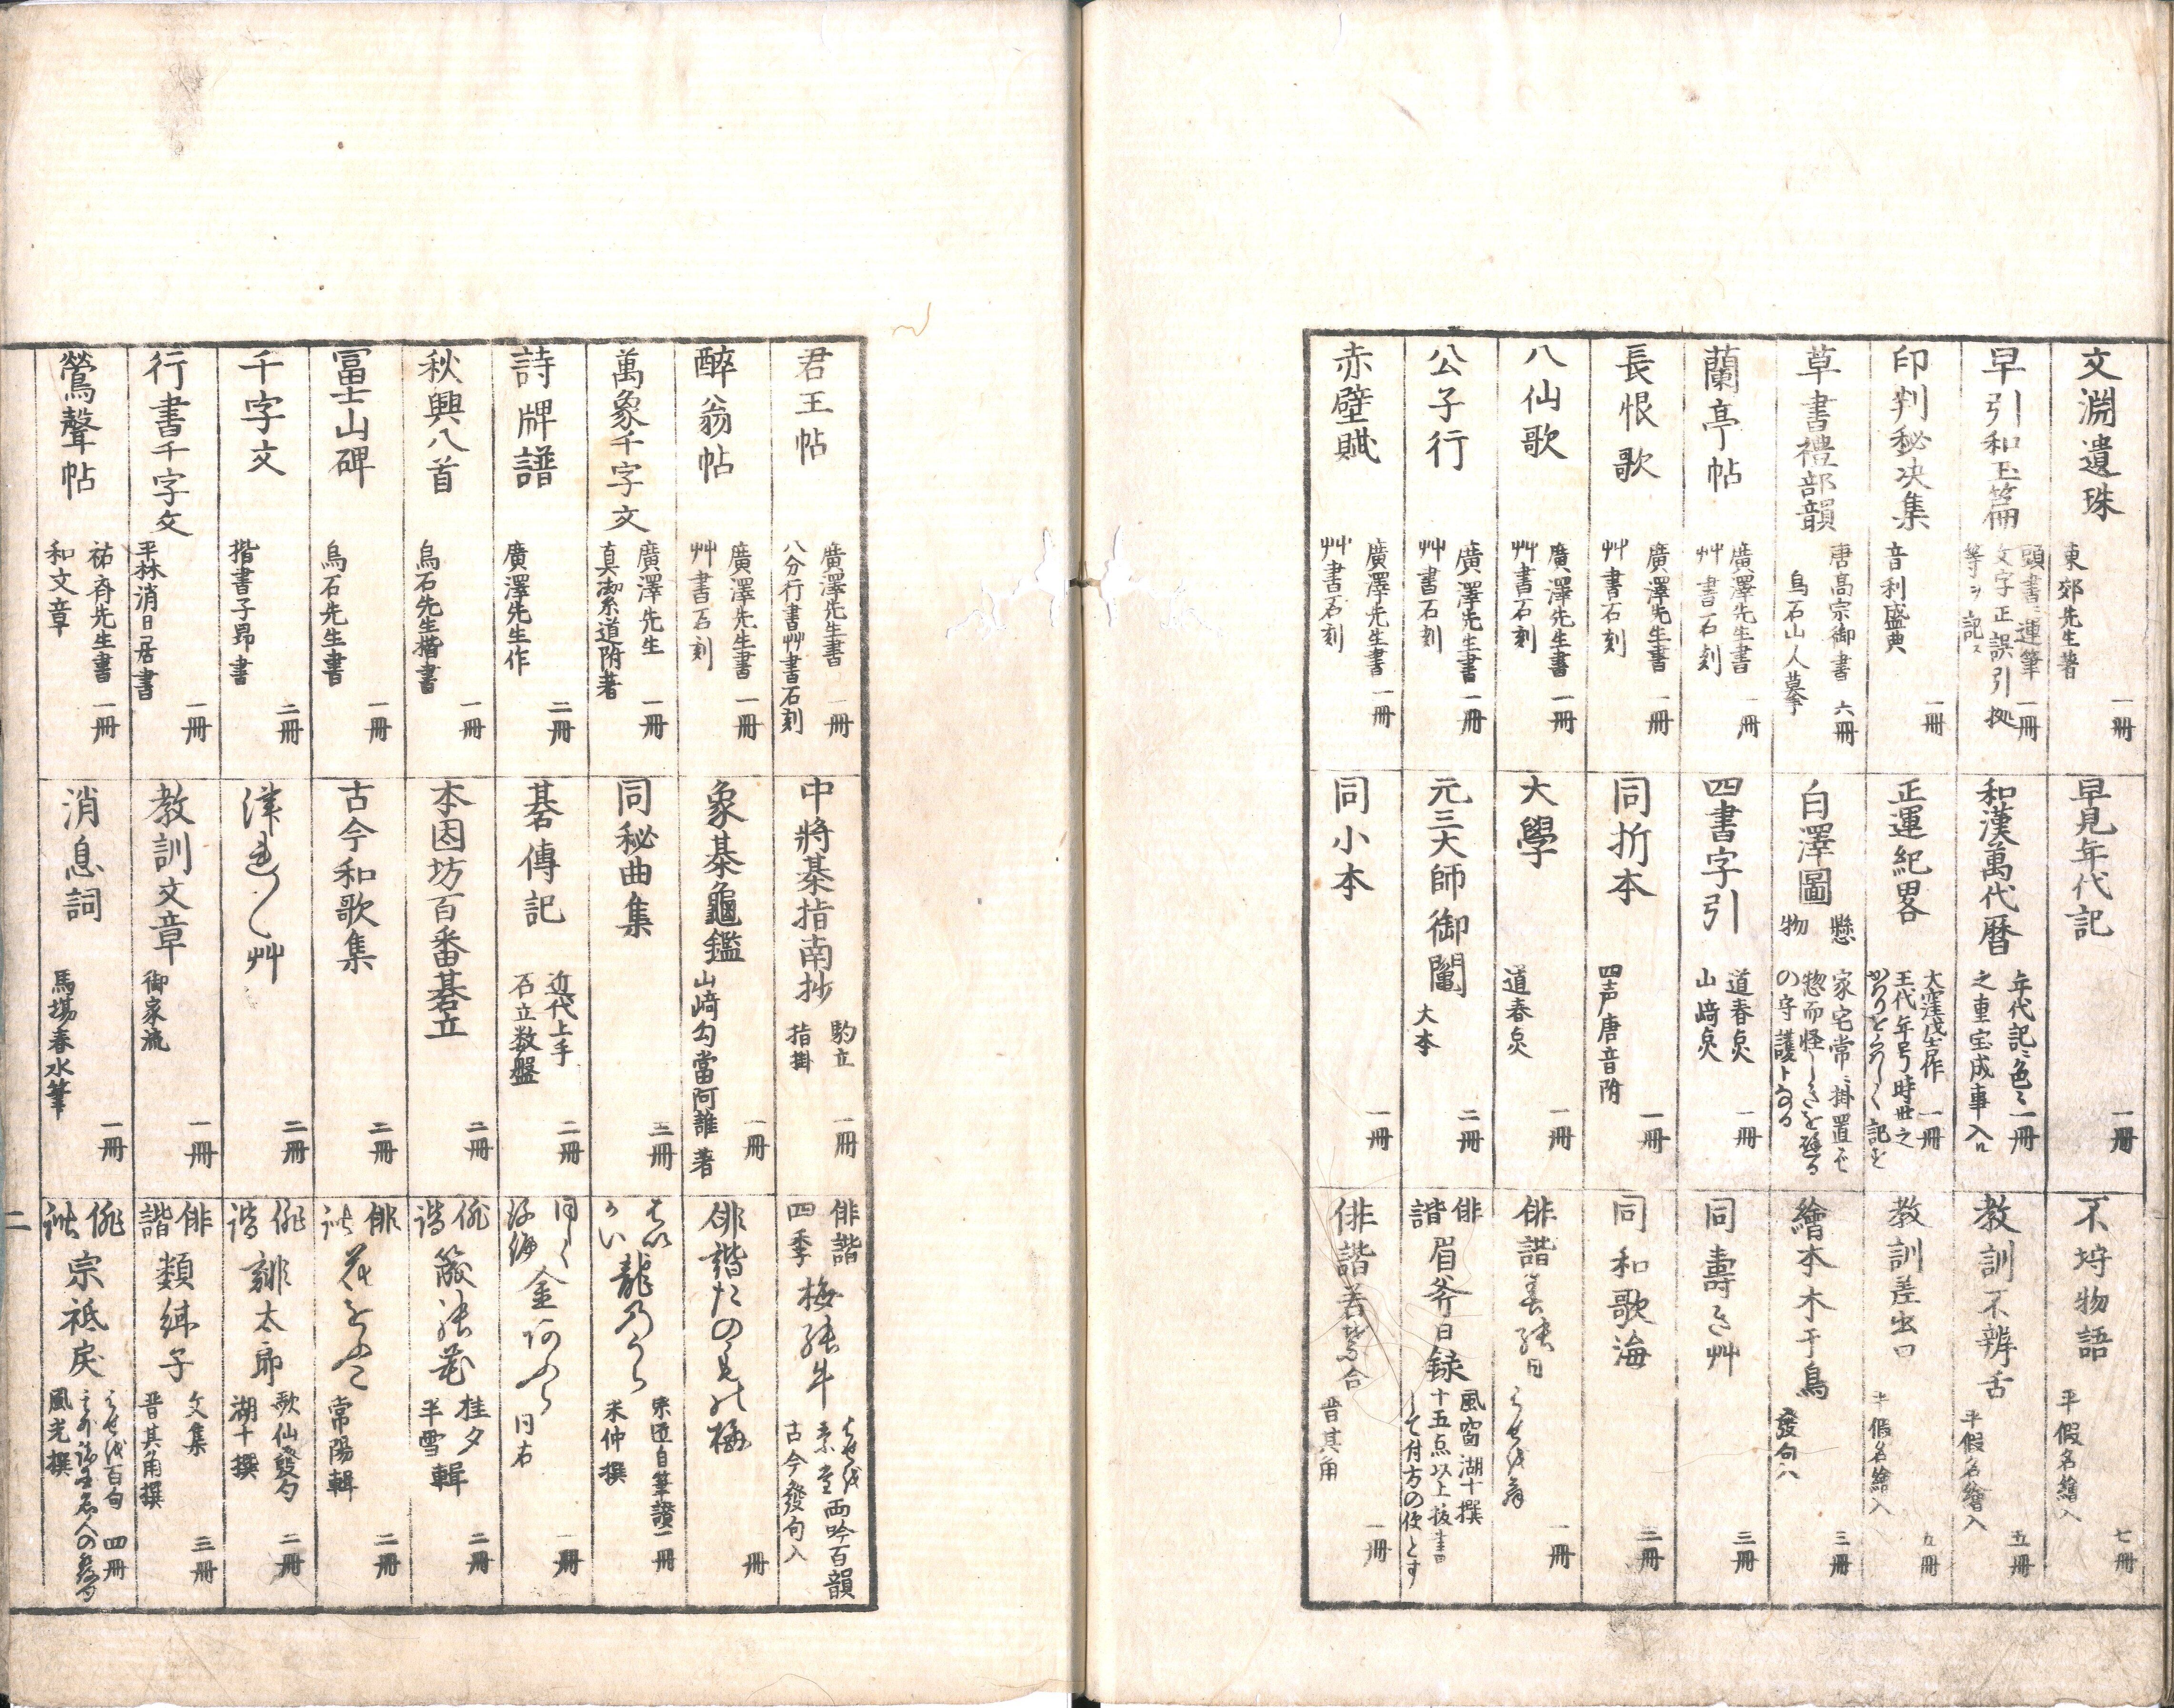 文淵遺珠 東郊先生著 一冊
早引和玉篇 頭書ニ運筆 文字正誤引拠 等ヲ記ス 一冊
印判秘决集 音利盛典 一冊
草書禮部韻 唐高宗御書 烏石山人摹 六冊
蘭亭帖 廣澤先生書 艸書石刻 一冊
長恨歌 廣澤先生書 艸書石刻 一冊
八仙歌 廣澤先生書 艸書石刻 一冊
公子行 廣澤先生書 艸書石刻 一冊
赤壁賦 廣澤先生書 艸書石刻 一冊
早見年代記 一冊
和漢萬代暦 年代記ニ色々 之重宝成事入ル 一冊
正運紀畧 大窪 作 王代年号時世之 記を 一冊
白澤圖 懸物 家宅常ニ掛置 惣而怪 の守護トなる
四書字引 道春点 山﨑点 一冊
同折本 四声唐音附 一冊
大學 道春点 一冊
元三大師御鬮 大本 二冊
同小本 一冊
不埒物語 平假名繪入 七冊
教訓不辨舌 平假名繪入 五冊
教訓差出口 平假名繪入 五冊
繪本木于鳥 發句入 三冊
同壽き艸 三冊
同和歌海 三冊
俳諧 一冊
俳諧眉斧日録 風窗湖十撰 十五点以上抜書 して付方の便とす
俳諧 合 晋其角 一冊
君王帖 廣澤先生書 八分行書艸書石刻 一冊
醉翁帖 廣澤先生書 艸書石刻 一冊
萬象千字文 廣澤先生 真潔系道附著 一冊
詩牌譜 廣澤先生作 二冊
秋興八首 烏石先生楷書 一冊
冨士山碑 烏石先生書 一冊
千字文 揩書子昂書 二冊
行書千字文 平林消日居書 一冊
鶯聲帖 祐斉先生書 和文章 一冊
中將棊指南抄 駒立 指掛 一冊
象棊龜鑑 山﨑勾當阿誰著 一冊
同秘曲集 三冊
碁傳記 近代上手 石立数盤 二冊
本因坊百番碁立 二冊
古今和歌集 二冊
津れ〱艸 二冊
教訓文章 御家流 一冊
消息詞 馬塲春水筆 一冊
俳諧四季 梅 牛 素堂両吟百韻 古今發句入
俳諧 の 梅 冊
龍のうら 自筆讃 米仲撰 一冊
金 同右 一冊
俳諧 桂夕 半雪輯 二冊
俳諧 花 常陽輯 二冊
俳諧 誹太郎 歌仙發句 湖十撰 二冊
俳諧 類 子 文集 晋其角撰 三冊
俳諧 宗祇戻 はせを百句 人の發句 風光撰 四冊
二